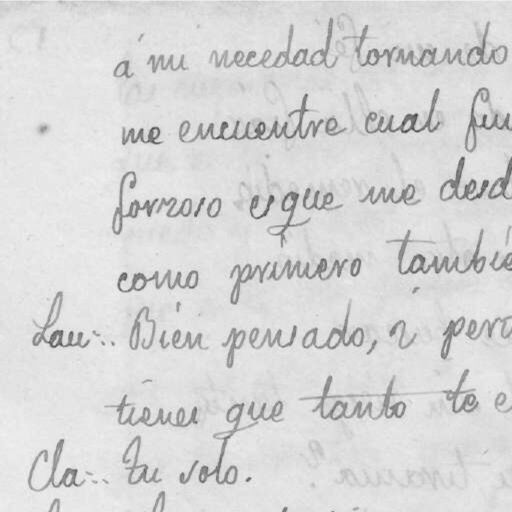 á mi necedad tornando
me encuentre cual fui
forzoso es que me desd
como primero tambié
Lau-.. Bién pensado, i pero
tienes que tanto te e
Cla-.. Tu solo.